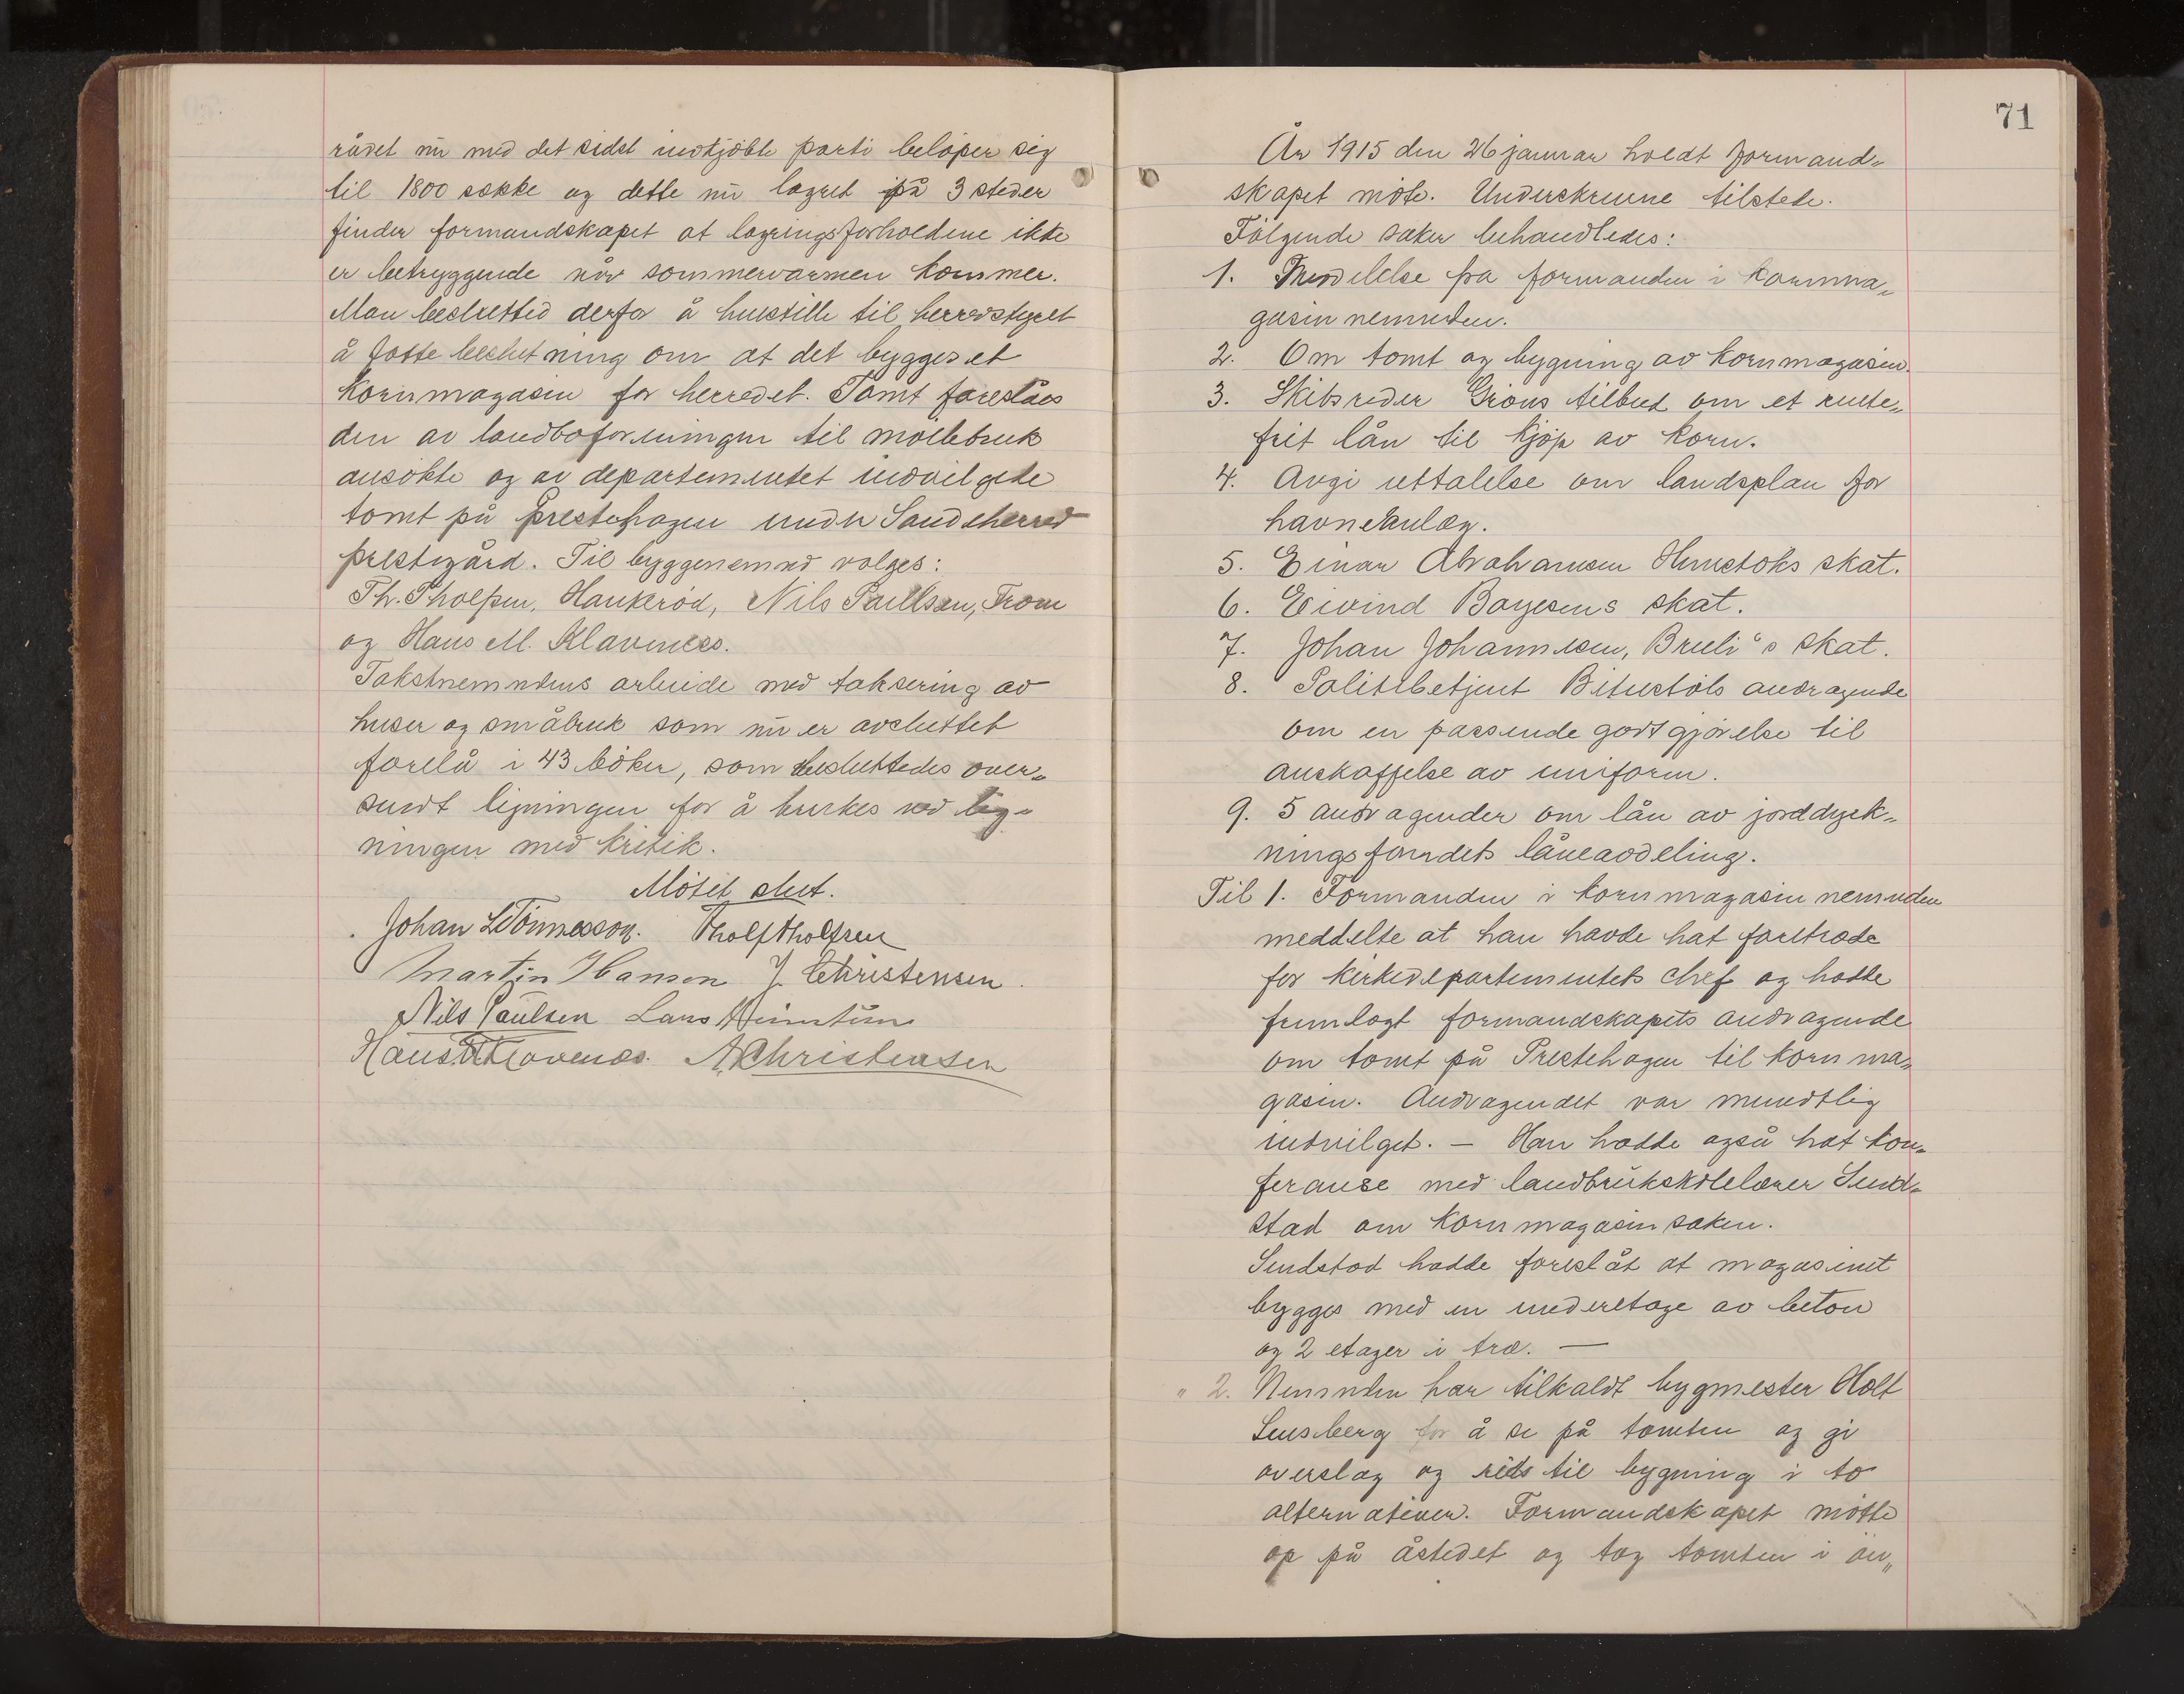 rådet nu med det sidst indkjöbte parti belöper sig
til 1800 sække og dette nu lagret på 3 steder
finder formandskapet at lagringsforholdene ikke
er betryggende når sommervarmen kommer.
Man beslutted derfor å henstille til herredstyret
å fatte beslutning om at det bygges et
kornmagasin for herredet. Tomt foreslåes
den av landboforeningen til möllebruk
ansökte og av departementet indvilgede
tomt på Prestehagen under Sandeherred
prestegård. Til byggenemnd valges:
Th. Tholfsen, Haukeröd, Nils Paulsen, Fron
og Hans M. Klavness.
Takstnemndens arbeide med taksering av
huser og småbruk som nu er avsluttet
forelå i 43 böker, som besluttedes over-
sendt ligningen for å brukes ved lig-
ningen med kritik.
Mötet slut.
Johan L Tönnesson. Tholf Tholfsen
Martin Hansen J. Christensen.
Nils Paulsen Lars
Hans M Klavenes. A. Christensen
71
År 1915 den 26 januar holdt formand-
skapet möte. Underskrevne tilstede.
Fölgende saker behandledes:
1. Meddelelse fra formanden i kornma-
gasinnemnden.
2. Om tomt og bygning av kornmagasin.
3. Skibsreder Gröns tilbud om et rente-
frit lån til kjöp av korn.
4. Avgi uttalelse om landsplan for
havneanlæg.
5. Einar Abrahamsen Hunstoks skat.
6. Eivind Bøyesens skat.
7. Johan Johannesen, Brueli's skat.
8. Politibetjent andragende
om en passende godtgjörelse til
anskaffelse av uniform.
9. 5 andragender om lån av jorddyrk-
ningsfondets låneavdeling.
Til 1. Formanden i kornmagasinnemnden
meddelte at han havde hat foretræde
for kirkedepartementets chef og hadde
fremlagt formandskapets andragende
om tomt på Prestehagen til kornma-
gasin. Andragendet var mundtlig
indvilget. – Han hadde også hat kon-
feranse med landbrukskolelærer Sund-
stad om kornmagasinsaken.
Sundstad hadde foreslåt at magasinet
bygges med en underetage av beton
og 2 etager i træ. —
" 2. Nemnden har tilkaldt bygmester Holt
Lensberg for å se på tomten og gi
overslag og rids til bygning i to
alternativer. Formandskapet mötte
op på åstedet og tog tomten i öie-